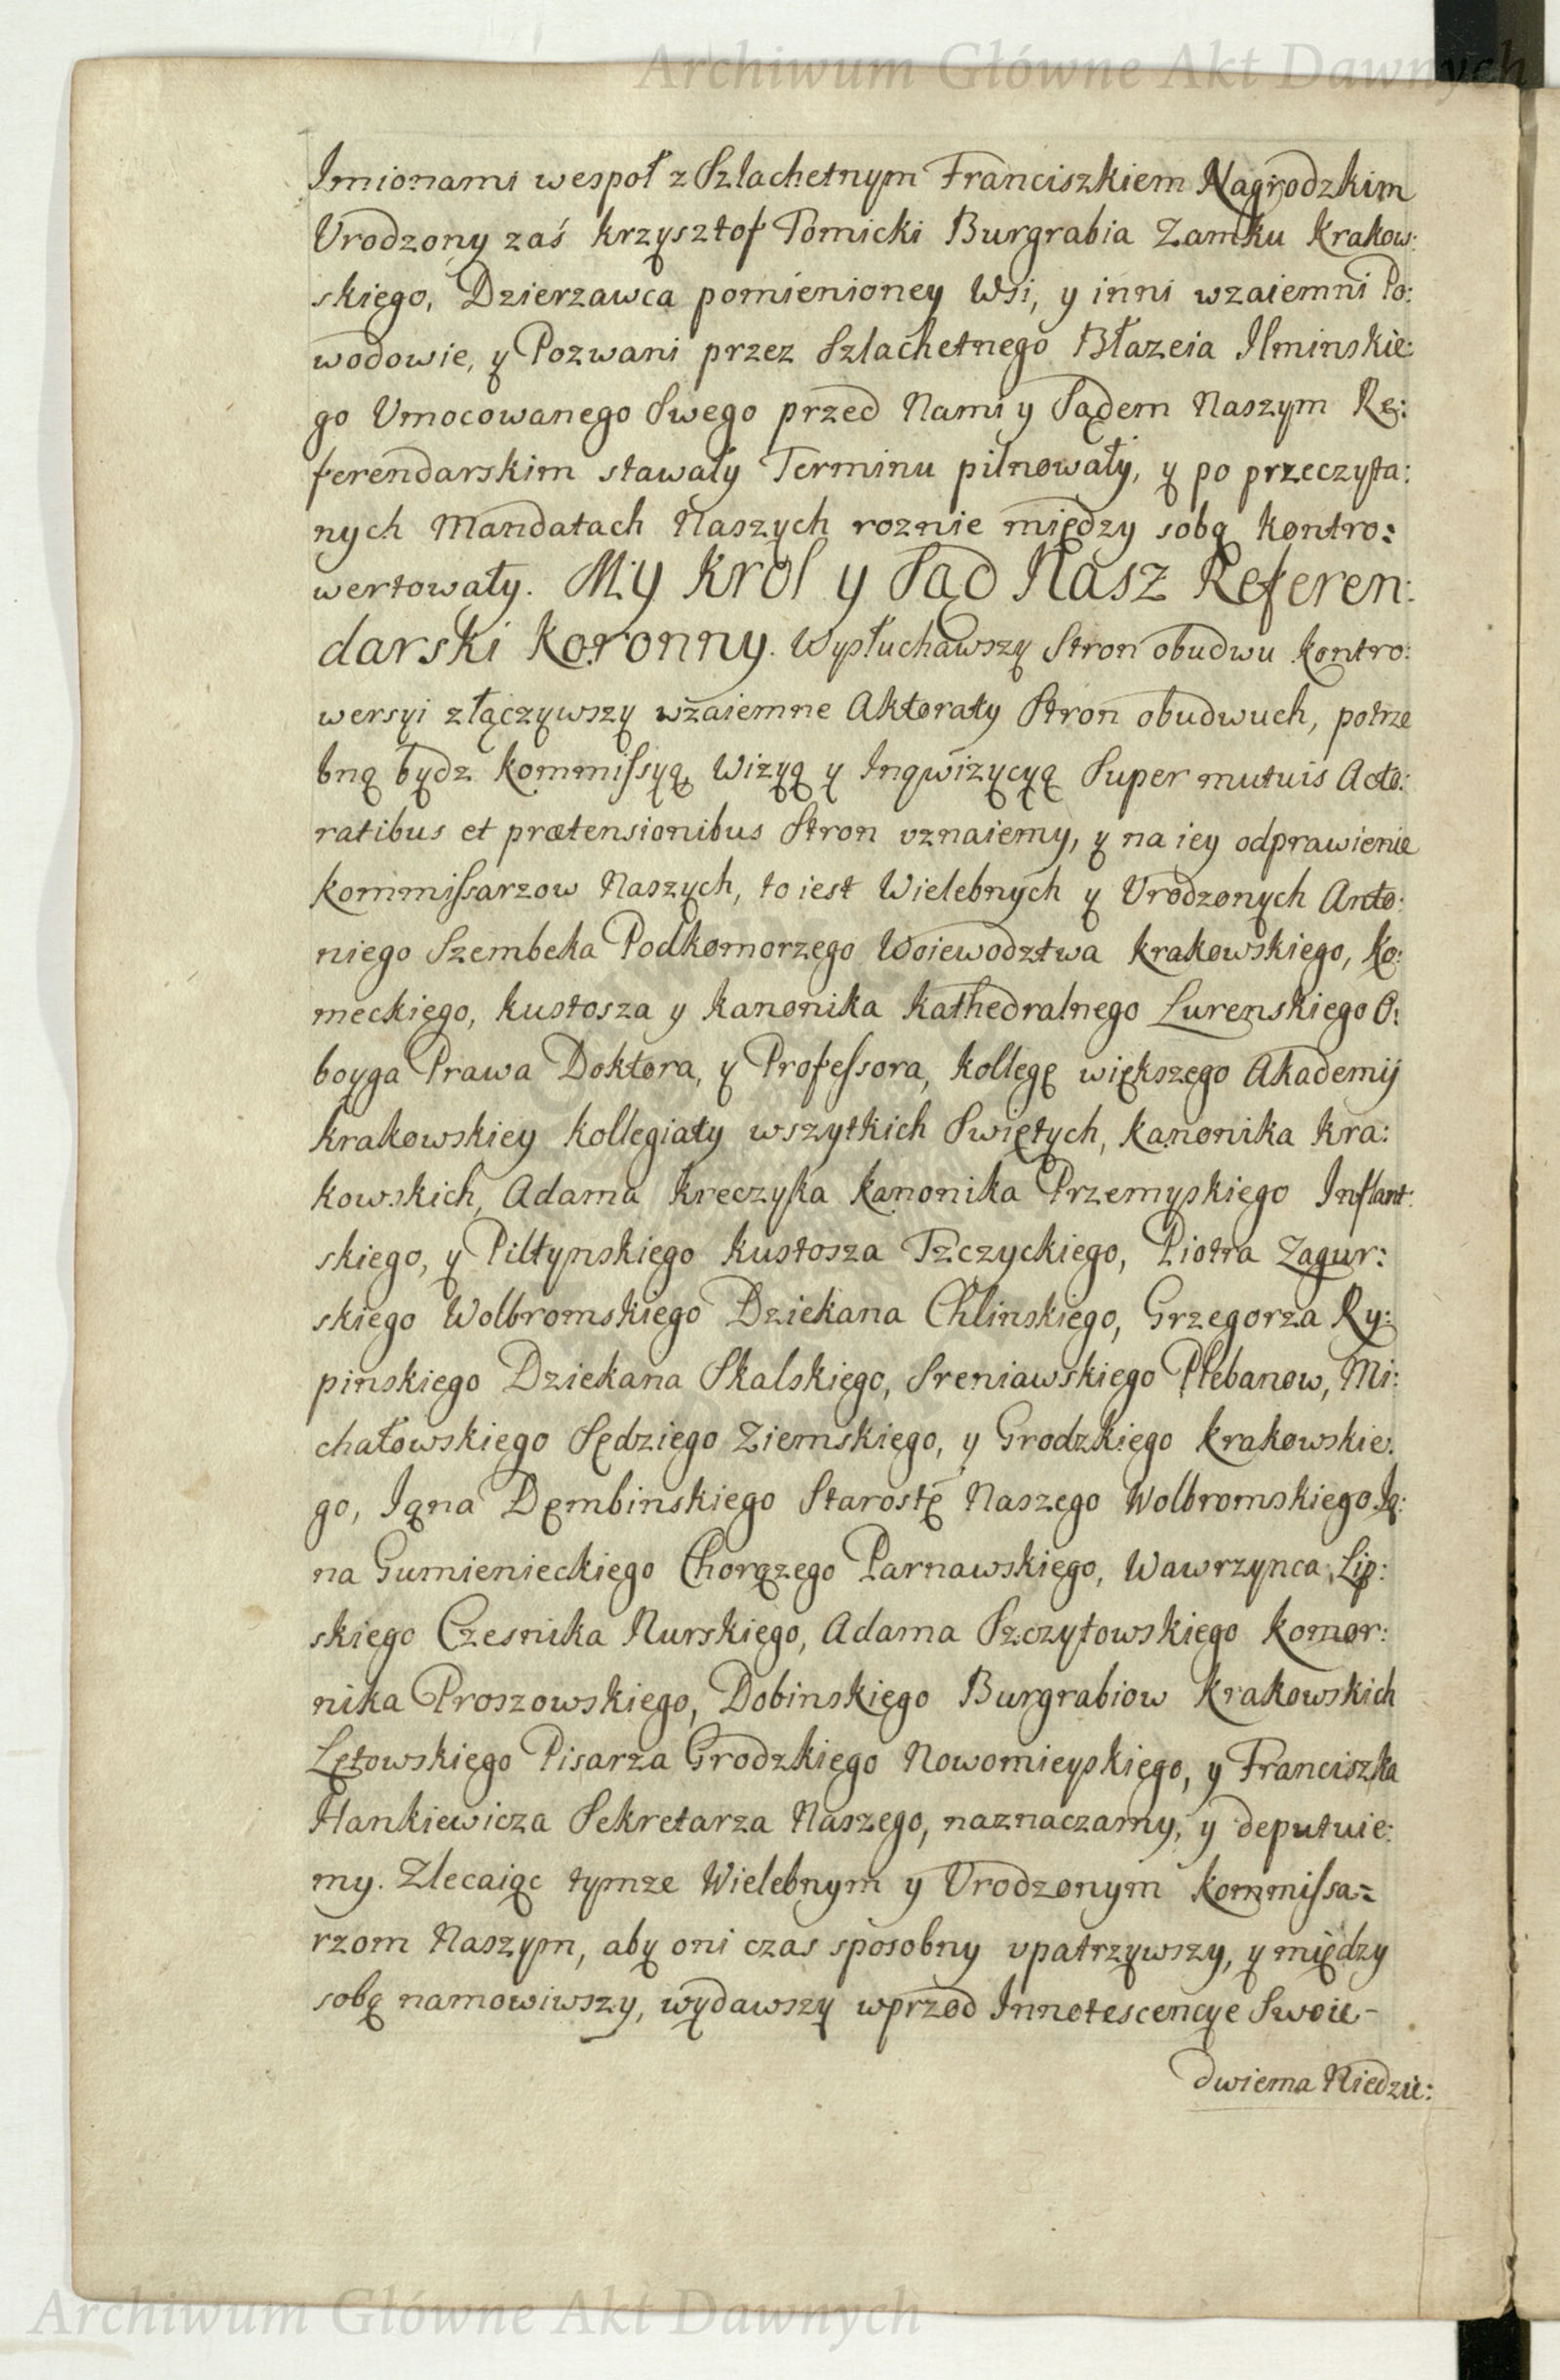 Archiwum Główne Akt Dawnych
Imionami wespoł z Szlachetnym Franciszkiem Nagrodzkim
Vrodzony zaś Krzysztof Tomicki Burgrabia Zamku Krakow:
skiego, Dzierzawca pomienioney Wsi, y inni wzaiemni Po:
wodowie, y Pozwani przez Szlachetnego Błazeia Ilminskie:
go Vmocowanego Swego przed Nami y Sądem Naszym Re:
ferendarskim stawały Terminu pilnowały, y po przeczyta:
nych Mandatach Naszych roznie między sobą kontro:
wertowały. My Krol y Sąd Nasz Referen:
darski Koronny. Wysłuchawszy Stron obudwu kontro:
wersyi złączywszy wzaiemne Aktoraty Stron obudwuch, potrze
bną bydz Kommissyą, Wizyą y Inqwizycyą Super mutuis Acto:
ratibus et prætensionibus Stron vznaiemy, y na iey odprawienie
Kommissarzow Naszych, to iest Wielebnych y Vrodzonych Anto:
niego Szembeka Podkomorzego Woiewodztwa Krakowskiego, Ko:
meckiego, Kustosza y Kanonika Kathedralnego Lurenskiego O:
boyga Prawa Doktora, y Professora, Kollegę większego Akademij
Krakowskiey Kollegiaty wszytkich Swiętych, Kanonika Kra:
kowskich, Adama Kreczyka Kanonika Przemyskiego Inflant:
skiego, y Piltynskiego Kustosza Tzczyckiego, Piotra Zagur:
skiego Wolbromskiego Dziekana Chlinskiego, Grzegorza Ry:
pinskiego Dziekana Skalskiego, Sreniawskiego Plebanow, Mi:
chałowskiego Sędziego Ziemskiego, y Grodzkiego Krakowskie:
go, Iąna Dembinskiego Starostę Naszego Wolbromskiego Ią:
na Gumienieckiego Chorązego Parnawskiego, Wawrzynca Lip:
skiego Czesnika Nurskiego, Adama Szczytowskiego Komor:
nika Proszowskiego, Dobinskiego Burgrabiow Krakowskich
Lętowskiego Pisarza Grodzkiego Nowomieyskiego, y Franciszka
Hankiewicza Sekretarza Naszego, naznaczamy, y deputuie:
my. Zlecaiąc tymze Wielebnym y Vrodzonym Kommissa=
rzom Naszym, aby oni czas sposobny vpatrzywszy, y między
sobą namowiwszy, wydawszy wprzod Innotescencye Swoie
dwiema Niedzie:
Archiwum Główne Akt Dawnych